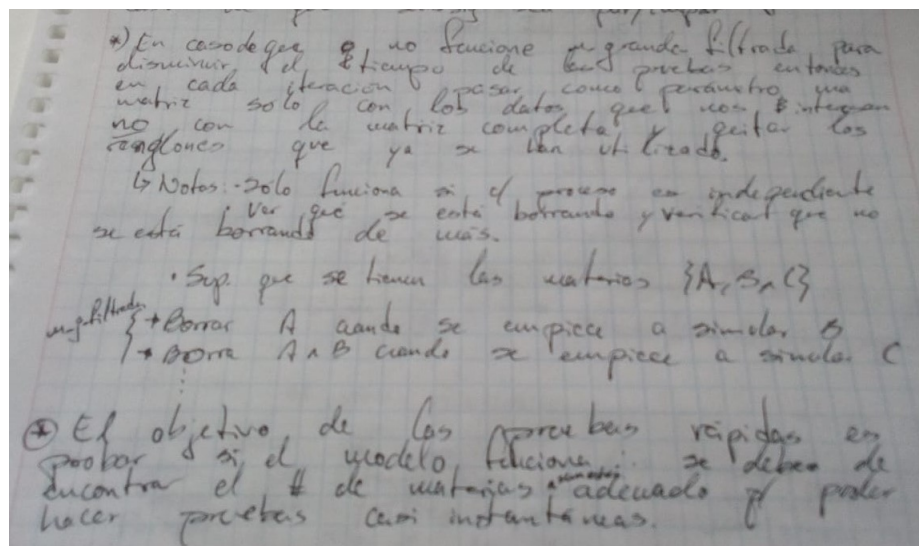 *) En caso de que no funcione m_grande_filtrada para
disminuir el tiempo de las pruebas entonces
en cada iteración pasar como parámetro una
matriz solo con los datos que nos interesan
no con la matriz completa y quitar los
renglones que ya se han utilizado.
↳ Notas: - Sólo funciona si c/ proceso es independiente
· Ver que se está borrando y verificar que no
se está borrando de más.
· Sup. que se tienen las materias {A, B, C}
→ Borrar A cuando se empiece a simular B
→ Borra A ∧ B cuando se empiece a simular C
* El objetivo de las pruebas rápidas es
probar si el modelo funciona ∴ se deben de
encontrar el # de materias adecuado p/ poder
hacer pruebas casi instantáneas.